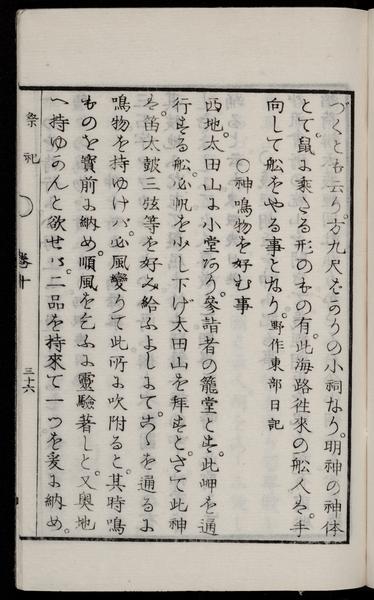 づくとも云り。方九尺をかりの小祠なり。明神の神体
とて。鼠に乘たる形のもの有。此海路徃來の舩人は。手
向して舩をやる事となり。野作東部日記
〇神鳴物を好む事
西地太田山に小堂あり。參詣者の籠堂とす。此岬を通
行する舩。必帆を少し下げ太田山を拜すと。さて此神
は。笛太皷三弦等を好み給ふよしにて。こゝを通るに
鳴物を持ゆけバ。必風變りて此所に吹附ると。其時鳴
ものを寳前に納め。順風をこふに靈驗著しと。又奥地
へ持ゆかんと欲せバ。二品を持來て一つを爰に納め。
祭祀
卷十
三十六